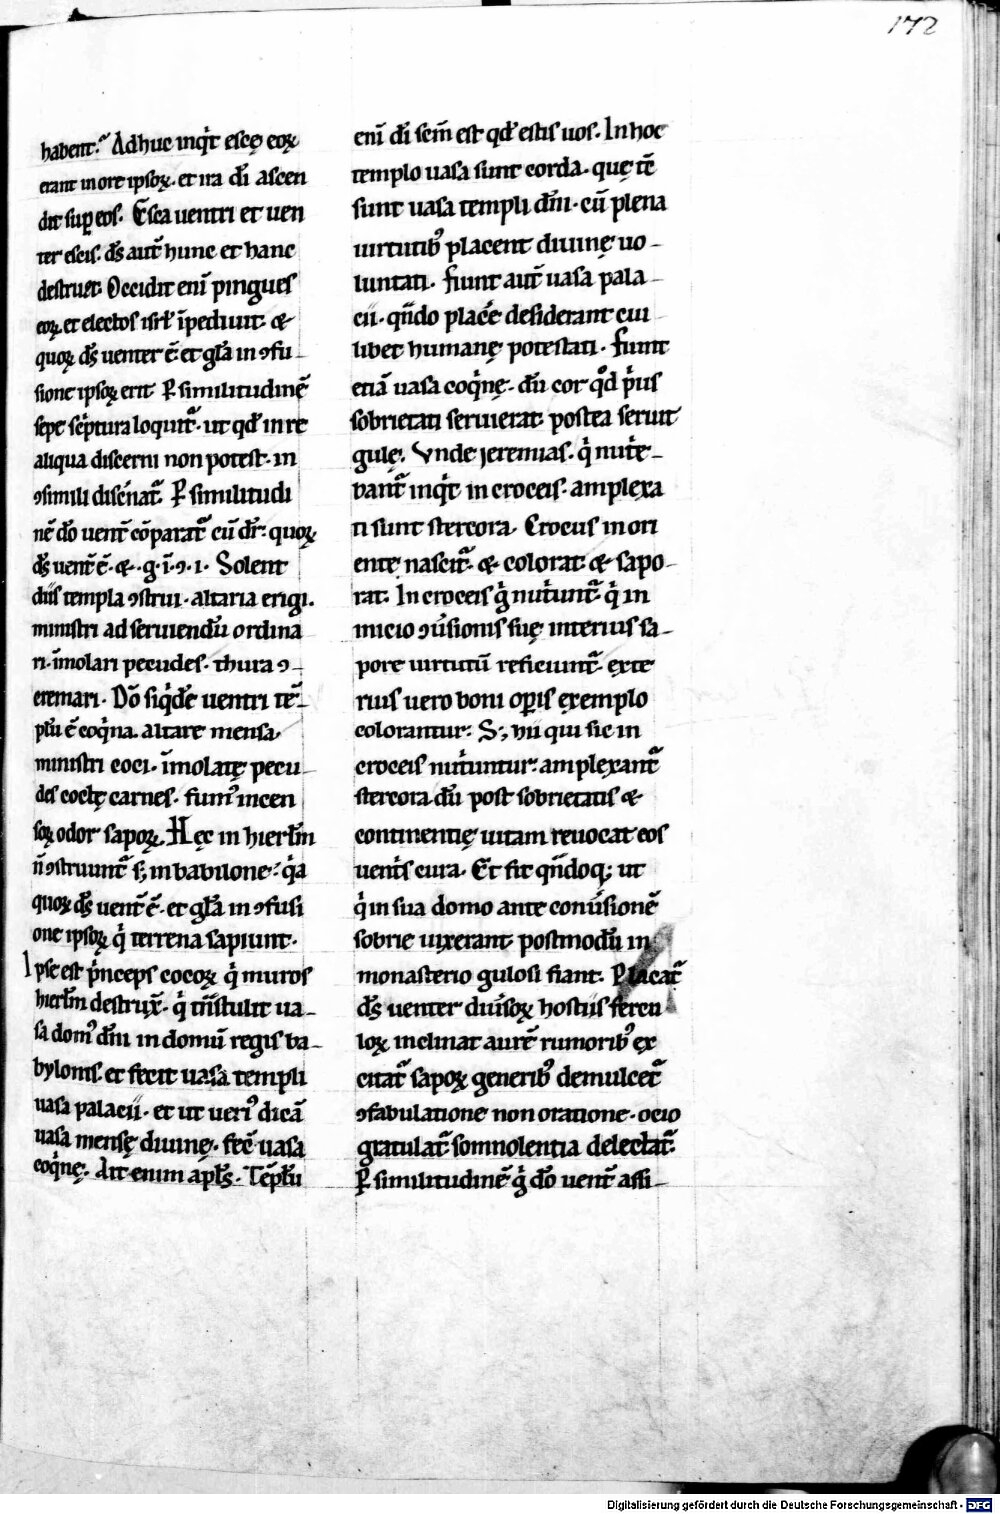 172
habent.' Adhuc inqͥt escę eoꝝ
erant in ore ipsoꝝ. et ira dī ascen
dit suꝑ eos. Esca uentri et uen
ter escis. ds̄ aut̄ hunc et hanc
destruet. Occidit enī pingues
eoꝝ. et electos isrł īpediuit. &
quoꝝ ds̄ uenter ē. et głā in ꝯfu-
sione ipsoꝝ erit. Ꝑ similitudinē
sepe scͥptura loquit᷑. ut qđ in re
aliqua discerni non potest. in
ꝯsimili discernat᷑. Ꝑ similitudi
nē đo uent̄ cōparat᷑ cū dr̄. quoꝝ
ds̄ uent̄ ē. &. g. ī. ꝯ. i. Solent
diis templa ꝯstrui. altaria erigi.
ministri ad seruiendū ordina
ri. īmolari pecudes. thura ꝯ-
cremari. Dō siqͥdē uentri tē-
plū ē coqͥna. altare mensa.
ministri coci. īmolatę pecu-
des coctę carnes. fumꝰ incen
soꝝ odor sapoꝝ. Hęc in hierłm
n̄ ꝯstruunt᷑ sꝫ in babilone. qͥa
quoꝝ ds̄ uent̄ ē. et głā in ꝯfusi
one ipsoꝝ qͥ terrena sapiunt.
Ipse est pͥnceps cocoꝝ qͥ muros
hierłm destrux̄. qͥ tn̄stulit ua-
sa domꝰ dn̄i in domū regis ba-
bylonis. et fecit uasa templi
uasa palacii. et ut ueriꝰ dicā
uasa mensę diuinę. fec̄ uasa
coqͥnę. Ait enim apłs. Tēpłū
enī dī scm̄ est qđ estis uos. In hoc
templo uasa sunt corda. quę tc̄
sunt uasa templi dn̄i. cū plena
uirtutibꝰ placent diuinę uo-
luntati. Fiunt aut̄ uasa pala-
cii. qn̄do placē desiderant cui
libet humanę potestati. Fiunt
etiā uasa coqͥnę. dū cor qͦd pͥus
sobrietati seruierat. postea seruit
gulę. Vnde jeremias. qͥ nutͥe-
bant᷑ inqͥt in croceis. amplexa
ti sunt stercora. Crocus in ori
ente nascit᷑. & colorat. & sapo-
rat. In croceis gͥ nutͥunt᷑. qͥ in
inicio ꝯuͥsionis suę interius sa-
pore uirtutū reficiunt᷑. exte
rius uero boni oꝑis exemplo
colorantur. Sꝫ hii qui sic in
croceis nutͥuntur. amplexant᷑
stercora. dū post sobrietatis &
continentię uitam reuocat eos
uentͥs cura. Et fit qn̄doqꝫ ut
qͥ in sua domo ante conuͥsionē
sobrie uixerant. postmodū in
monasterio gulosi fiant. Placat᷑
ds̄ uenter diuͥsoꝝ hostiis fercu-
loꝝ inclinat aurē rumoribꝰ ex
citat᷑ sapoꝝ generibꝰ demulcet᷑
ꝯfabulatione non oratione. ocio
gratulat᷑. somnolentia delectat᷑.
Ꝑ similitudinē gͥ đo uent̄ assi-
Digitalisierung gefördert durch die Deutsche Forschungsgemeinschaft - DFG